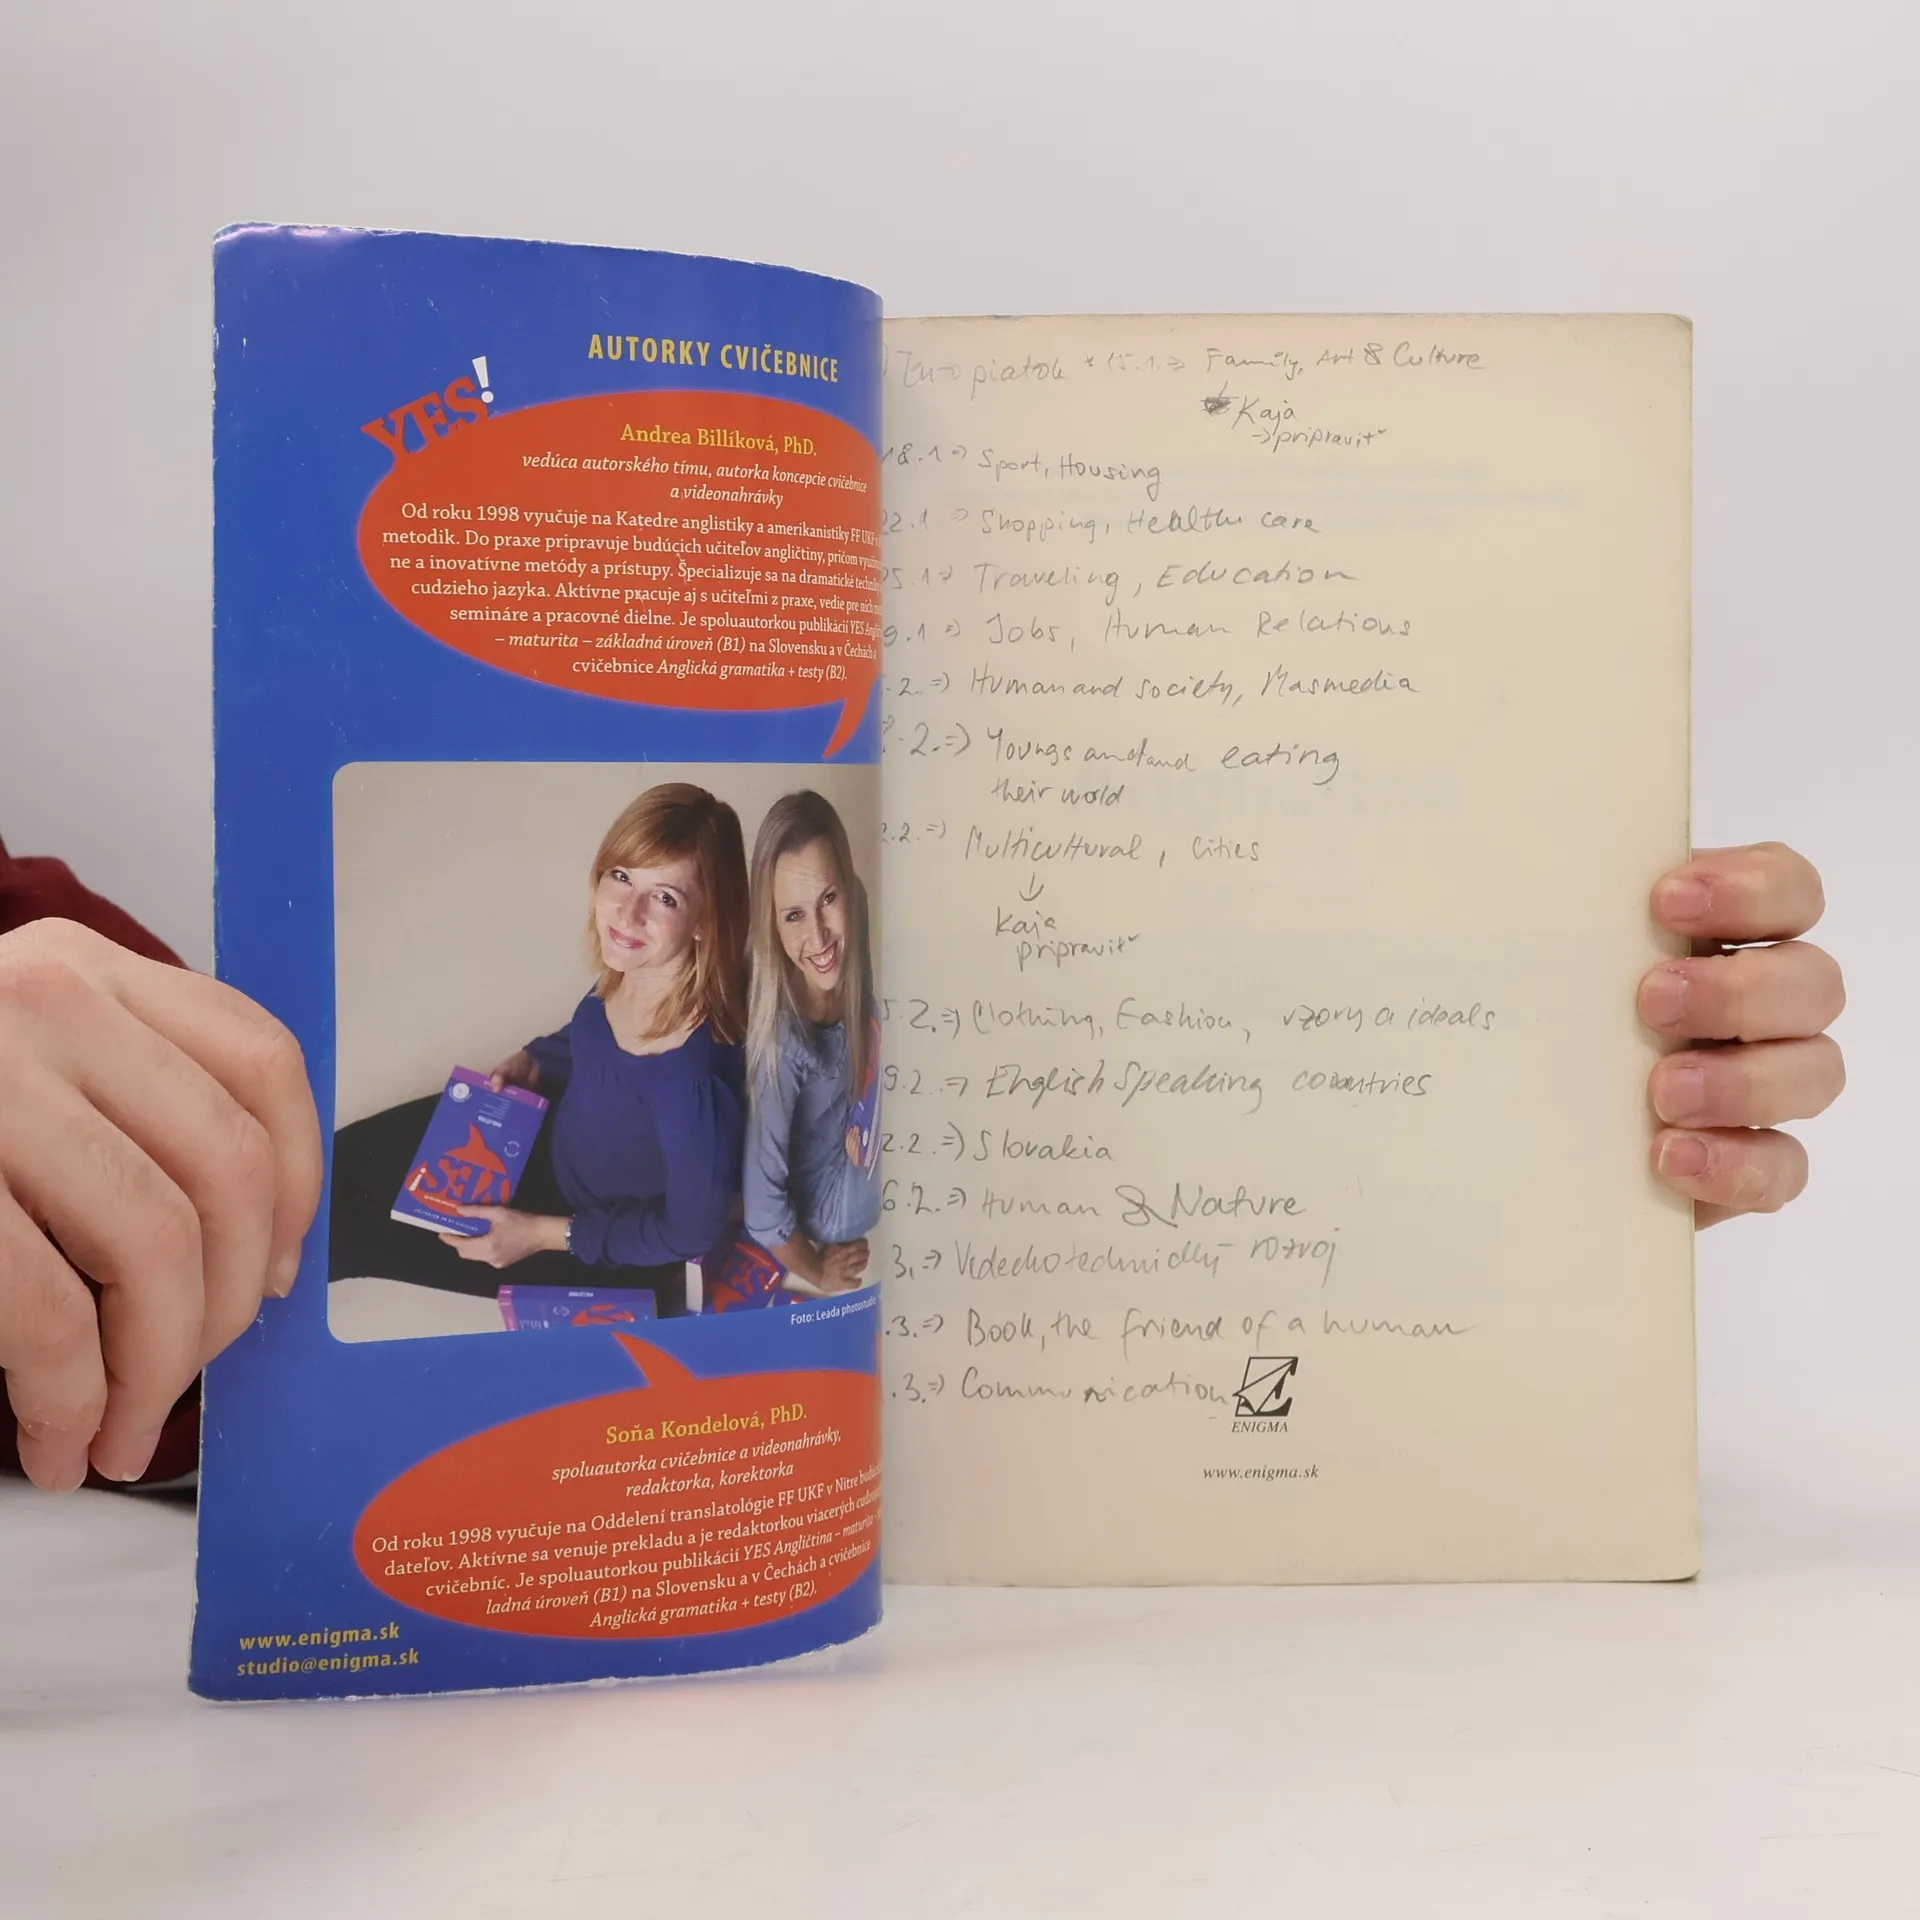 AUTORKY CVIČEBNICE
YES!
Andrea Billíková, PhD.
vedúca autorského tímu, autorka koncepcie cvičebnice
a videonahrávky
Od roku 1998 vyučuje na Katedre anglistiky a amerikanistiky FF UKF v
metodik. Do praxe pripravuje budúcich učiteľov angličtiny, pričom
ne a inovatívne metódy a prístupy. Špecializuje sa na dramatické
cudzieho jazyka. Aktívne pracuje aj s učiteľmi z praxe, vedie pre nich
semináre a pracovné dielne. Je spoluautorkou publikácií YES
– maturita – základná úroveň (B1) na Slovensku a v Čechách a
cvičebnice Anglická gramatika + testy (B2).
YES!
Foto: Leada photostudio
Soňa Kondelová, PhD.
spoluautorka cvičebnice a videonahrávky,
redaktorka, korektorka
Od roku 1998 vyučuje na Oddelení translatológie FF UKF v Nitre
dateľov. Aktívne sa venuje prekladu a je redaktorkou viacerých
cvičebníc. Je spoluautorkou publikácií YES Angličtina – maturita –
ladná úroveň (B1) na Slovensku a v Čechách a cvičebnice
Anglická gramatika + testy (B2).
www.enigma.sk
studio@enigma.sk
piatok * 15.1. => Family, Art & Culture
Kaja
-> pripraviť
18.1 => Sport, Housing
22.1 => Shopping, Health care
25.1 => Traveling, Education
9.1 => Jobs, Human Relations
.2. => Human and society, Masmedia
.2. => Youngs and eating
their world
2.2. => Multicultural, Cities
Kaja
pripraviť
5.2. => Clothing, Fashion, vzory a ideals
9.2. => English Speaking countries
2.2. => Slovakia
6.2. => Human & Nature
3. => Vedeckotechnický rozvoj
.3. => Book, the friend of a human
.3. => Communication
ENIGMA
www.enigma.sk